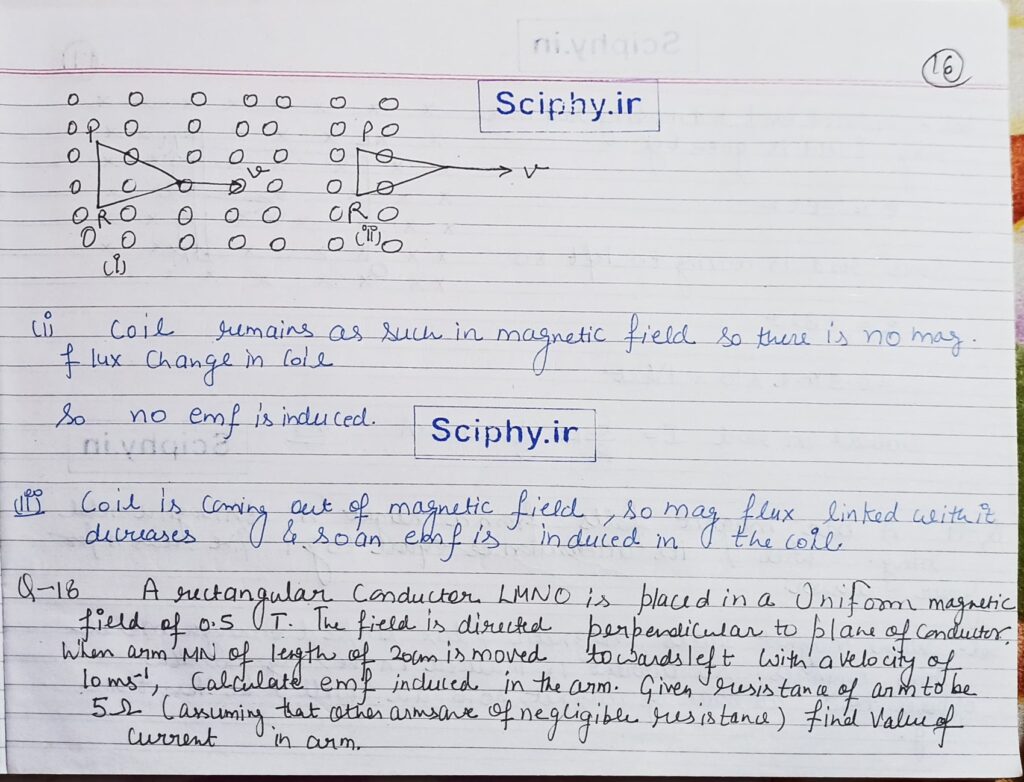 16
Sciphy.ir
P
P
v
v
R
R
(i)
(ii)
(i) Coil remains as such in magnetic field so there is no mag.
flux Change in Coil
So no emf is induced.
Sciphy.ir
(ii) Coil is Coming out of magnetic field, so mag flux linked with it
decreases & so an emf is induced in the coil
Q-18 A rectangular Conductor LMNO is placed in a Uniform magnetic
field of 0.5 T. The field is directed perpendicular to plane of conductor.
When arm MN of length of 20cm is moved towards left with a velocity of
10 ms⁻¹, Calculate emf induced in the arm. Given resistance of arm to be
5Ω (assuming that other arms are of negligible resistance) find Value of
current in arm.